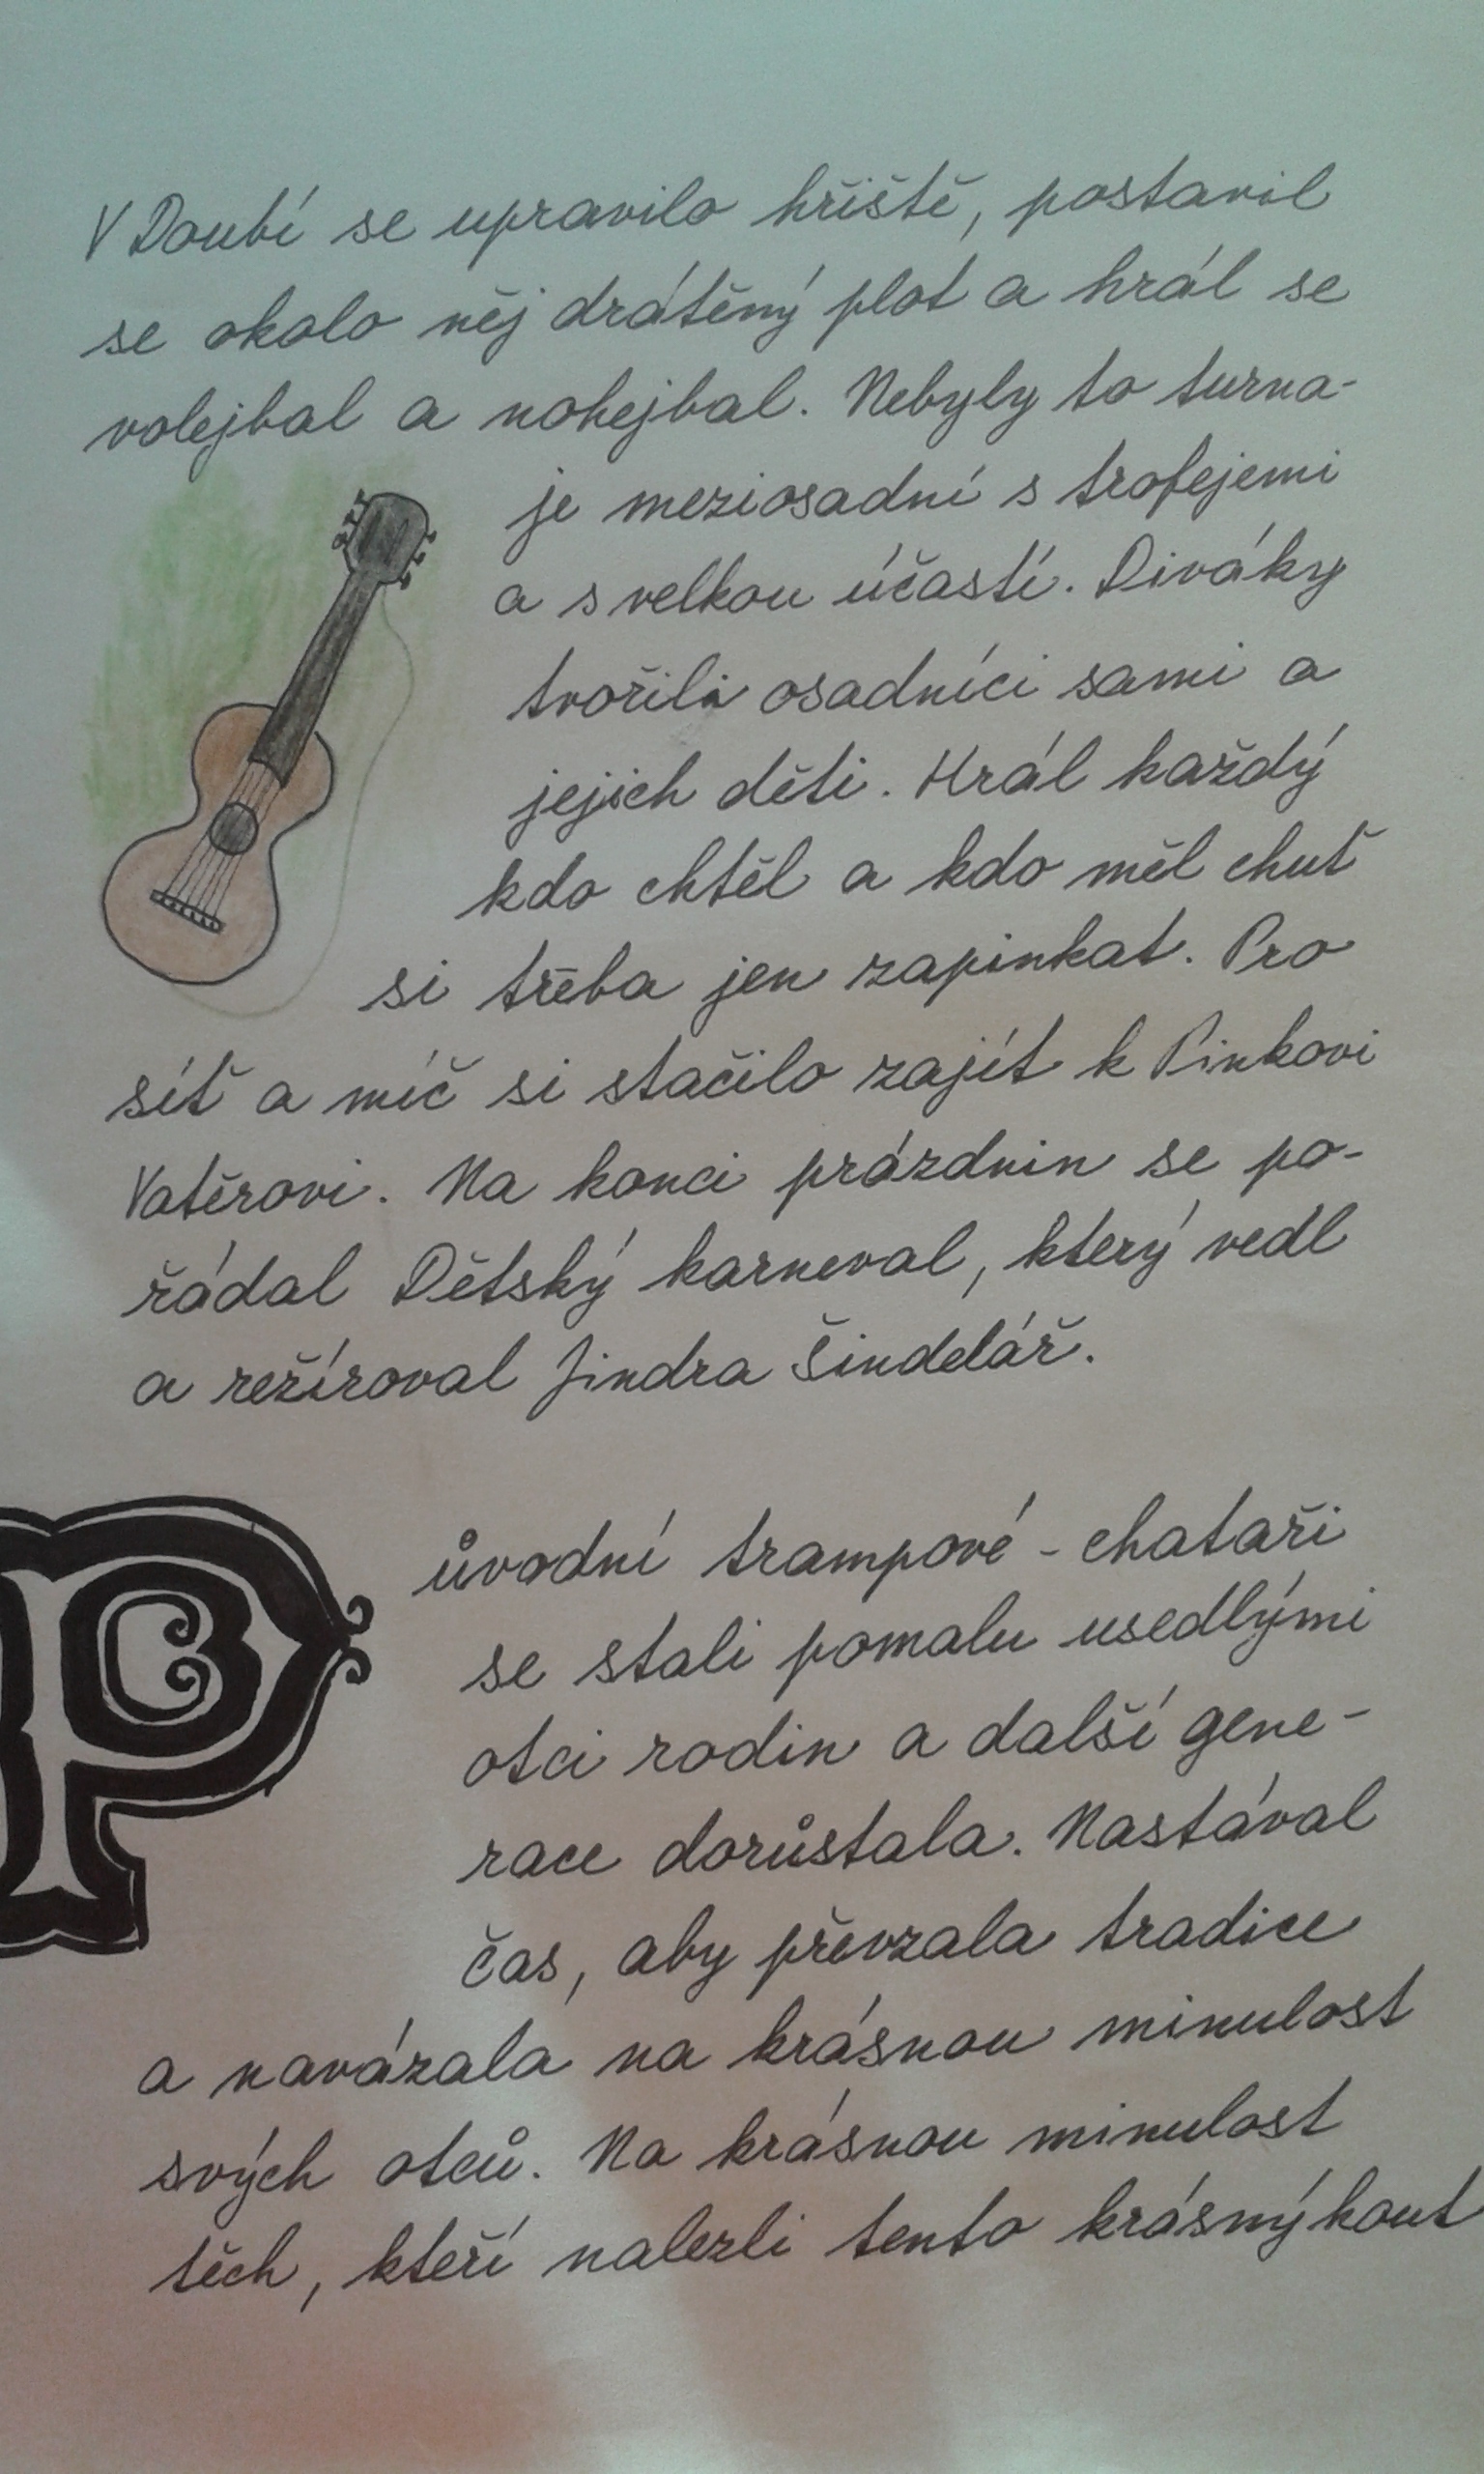 V Doubí se upravilo hřiště, postavil
se okolo něj drátěný plot a hrál se
volejbal a nohejbal. Nebyly to turna-
je meziosadní s trofejemi
a s velkou účastí. Diváky
tvořili osadníci sami a
jejich děti. Hrál každý
kdo chtěl a kdo měl chuť
si třeba jen zapinkat. Pro
síť a míč si stačilo zajít k Pinkovi
Vatěrovi. Na konci prázdnin se po-
řádal Dětský karneval, který vedl
a režíroval Jindra Šindelář.
Původní trampové - chataři
se stali pomalu usedlými
otci rodin a další gene-
race dorůstala. Nastával
čas, aby převzala tradice
a navázala na krásnou minulost
svých otců. Na krásnou minulost
těch, kteří nalezli tento krásný kout